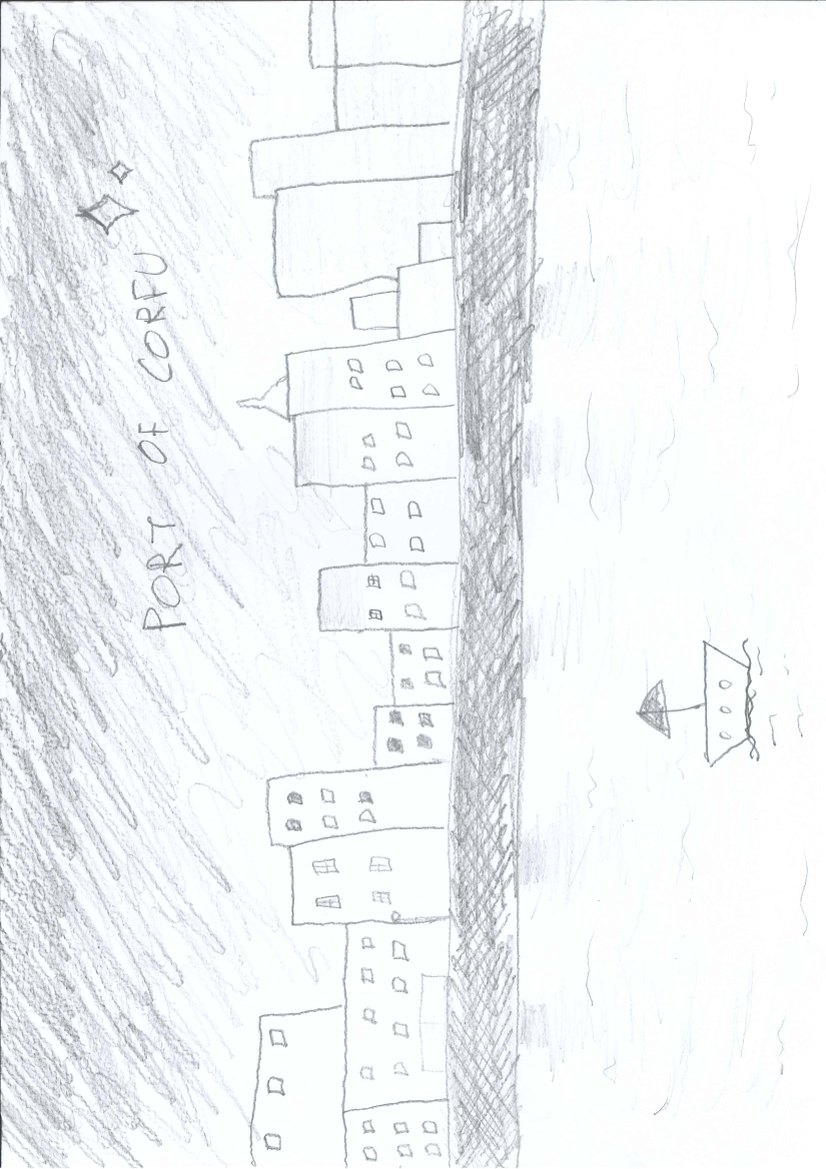 PORT OF CORFU